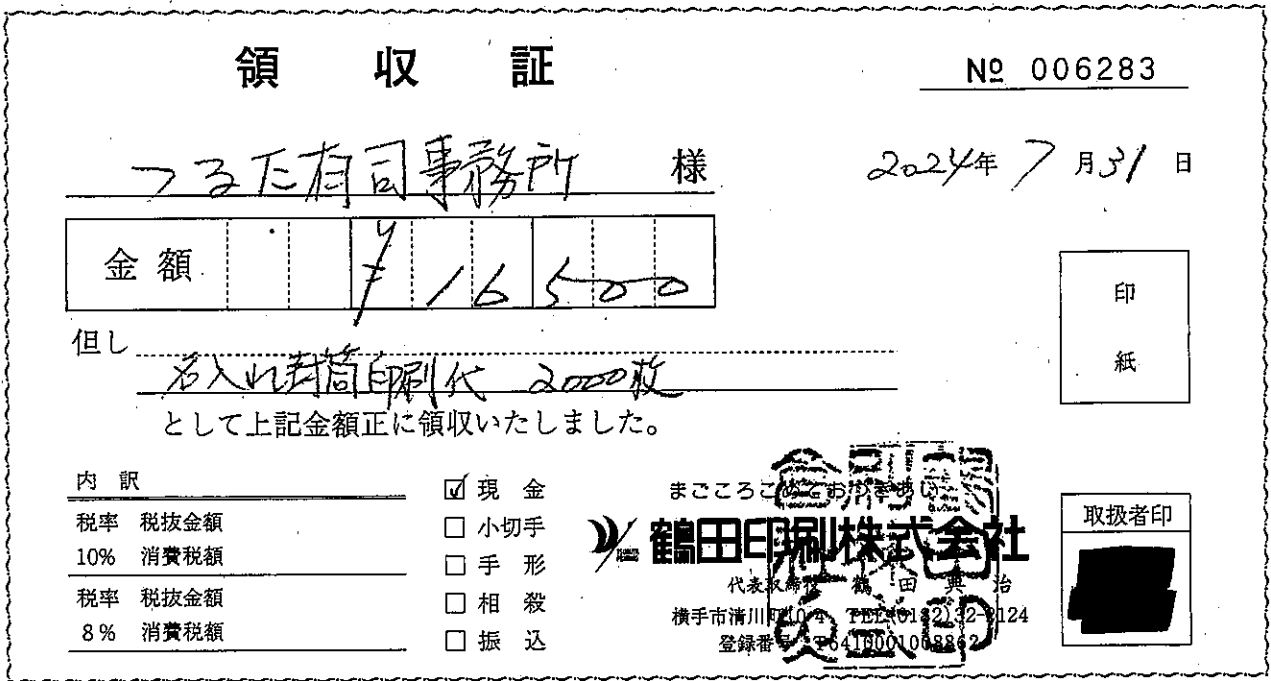 領収証
№ 006283
つるた有司事務所 様
2024年 7月31日
金額 ¥16500
印紙
但し
名入れ封筒印刷代 2000枚
として上記金額正に領収いたしました。
内訳
税率 税抜金額
10% 消費税額
税率 税抜金額
8% 消費税額
☑ 現金
□ 小切手
□ 手形
□ 相殺
□ 振込
まごころこめておつきあい
鶴田印刷株式会社
代表取締役 鶴田典治
横手市清川町10-4 TEL(0182)32-2124
登録番号
取扱者印